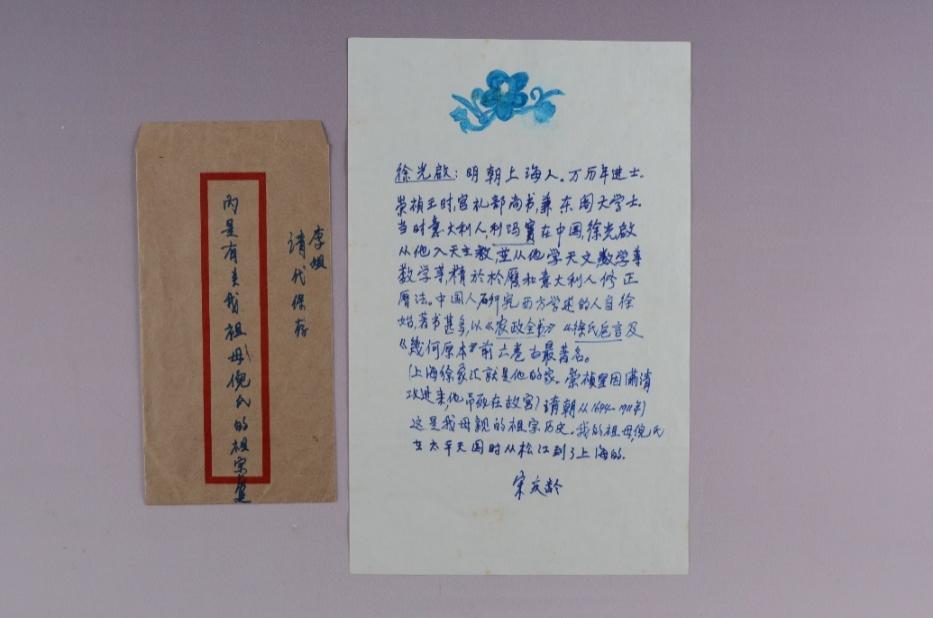 李姐
请代保存
内是有关我祖母倪氏的祖宗
徐光啟：明朝上海人。万历年进士.
崇祯王时,官礼部尚书,兼东阁大学士.
当时意大利人,利玛竇在中国,徐光啟
从他入天主教,並从他学天文数学等
数学等,精於於曆和意大利人修正
曆法。中国人研究西方学述的人自徐
始,著书甚多,以《农政全书》《徐氏庖言及
《幾何原本》前六卷为最著名。
(上海徐家汇就是他的家。崇祯皇因满清
攻进来,他吊死在故宫)清朝从1644-1911年)
这是我母親的祖宗历史。我的祖母,倪氏
在太平天国时从松江到了上海的.
宋庆龄